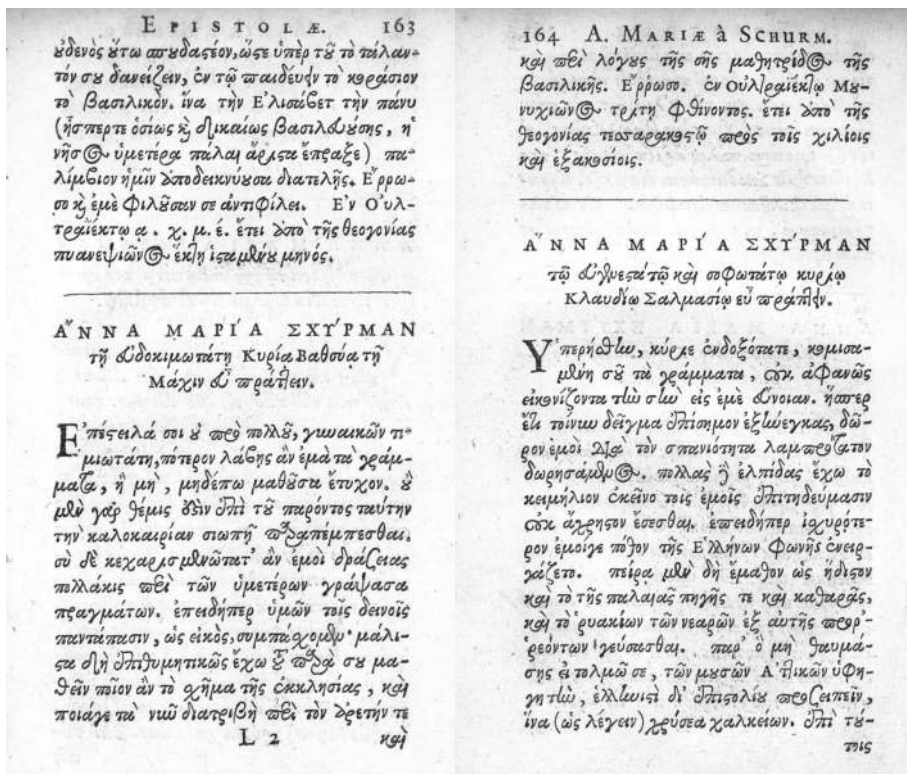 EPISTOLÆ. 163
οὐδενὸς οὕτω σπουδαστέον, ὥστε ὑπὲρ τοῦ τὸ τάλαν-
τόν σου δανείζειν, ἐν τῷ παιδεύειν τὸ κοράσιον
τὸ βασιλικὸν. ἵνα τὴν Ἐλισάβετ τὴν πάνυ
(ἧσπερτε ὁσίως καὶ δικαίως βασιλευούσης, ἡ
νῆσος ὑμετέρα πάλαι ἄριστα ἔπραξε) πα-
λίμβιον ἡμῖν ἀποδεικνύουσα διατελῇς. Ἔρρω-
σο καὶ ἐμὲ φιλοῦσαν σε ἀντιφίλει. Ἐν Οὐλ-
τραϊέκτῳ α. χ. μ. έ. ἔτει ἀπὸ τῆς θεογονίας
πυανεψιῶνος ἕκτῃ ἱσταμένου μηνός.
ἌΝΝΑ ΜΑΡΊΑ ΣΧΥΡΜΑΝ
τῇ εὐδοκιμωτάτῃ Κυρίᾳ Βαθσύᾳ τῇ
Μάχιν εὖ πράττειν.
Ἐπέστειλά σοι οὐ πρὸ πολλοῦ, γυναικῶν τι-
μιωτάτη, πότερον λάβῃς ἂν ἐμὰ τὰ γράμ-
ματα, ἢ μὴ, μηδέπω μαθοῦσα ἔτυχον. οὐ
μὲν γὰρ θέμις οὖσιν ἐπὶ τοῦ παρόντος ταύτην
τὴν καλοκαιρίαν σιωπῇ παραπέμπεσθαι.
σὺ δὲ κεχαρισμενώτατ' ἂν ἐμοὶ δράσειας
πολλάκις περὶ τῶν ὑμετέρων γράψασα
πραγμάτων. ἐπειδήπερ ὑμῶν τοῖς δεινοῖς
παντάπασιν, ὡς εἰκὸς, συμπάσχομεν· μάλι-
στα δὴ ἐπιθυμητικῶς ἔχω τοῦ παρά σου μα-
θεῖν ποῖον ἂν τὸ σχῆμα τῆς ἐκκλησίας, καὶ
ποιάγε τὰ νῦν διατριβὴ περὶ τὸν ἀρετήν τε
L 2 καὶ
164 A. MARIÆ à SCHURM.
καὶ περὶ λόγους τῆς σῆς μαθητρίδος τῆς
βασιλικῆς. Ἔρρωσο. ἐν Οὐλτραϊέκτῳ Μου-
νυχιῶνος τρίτῃ φθίνοντος. ἔτει ἀπὸ τῆς
θεογονίας τεσσαρακοστῷ πρὸς τοῖς χιλίοις
καὶ ἑξακοσίοις.
ἌΝΝΑ ΜΑΡΊΑ ΣΧΥΡΜΑΝ
τῷ εὐγενεστάτῳ καὶ σοφωτάτῳ κυρίῳ
Κλαυδίῳ Σαλμασίῳ εὖ πράττειν.
Ὑπερήσθην, κύριε ἐνδοξότατε, κομισα-
μένη σοῦ τὰ γράμματα, οὐκ ἀφανῶς
εἰκονίζοντα τὴν σὴν εἰς ἐμὲ εὔνοιαν. ἥσπερ
ἔτι τοίνυν δεῖγμα ἐπίσημον ἐξήνεγκας, δῶ-
ρον ἐμοὶ διὰ τὸν σπανιότητα λαμπρότατον
δωρησάμενος. πολλὰς δὲ ἐλπίδας ἔχω τὸ
κειμήλιον ἐκεῖνο τοῖς ἐμοῖς ἐπιτηδεύμασιν
οὐκ ἄχρηστον ἔσεσθαι. ἐπειδήπερ ἰσχυρότε-
ρον ἐμοίγε πόθον τῆς Ἑλλήνων φωνῆς ἐνειρ-
γάζετο. πείρᾳ μὲν δὴ ἔμαθον ὡς ἥδιστον
καὶ τὸ τῆς παλαιᾶς πηγῆς τε καὶ καθαρᾶς,
καὶ τὸ ῥυακίων τῶν νεαρῶν ἐξ αὐτῆς προρ-
ρεόντων γεύσασθαι. παρ' ὃ μὴ θαυμά-
σῃς εἰ τολμῶ σε, τῶν μουσῶν Ἀττικῶν ὑφη-
γητὴν, ἑλληνιστὶ δι' ἐπιστολὴν προσειπεῖν,
ἵνα (ὡς λέγειν) χρύσεα χαλκείων. ἐπὶ τού-
τοις